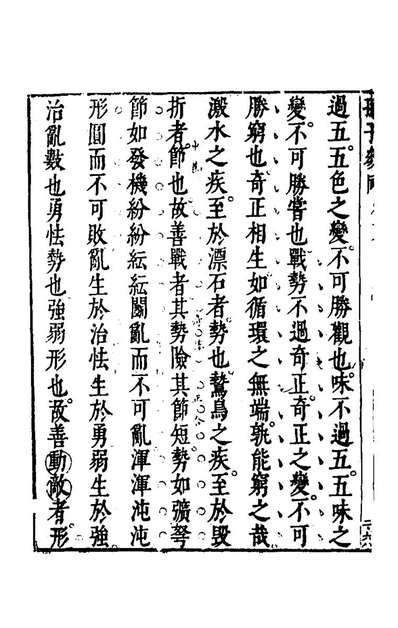 過五五色之變不可勝觀也味不過五五味之
變不可勝嘗也戰勢不過奇正奇正之變不可
勝窮也奇正相生如循環之無端孰能窮之哉
激水之疾至於漂石者勢也鷙鳥之疾至於毀
折者節也故善戰者其勢險其節短勢如彍弩
節如發機紛紛紜紜鬭亂而不可亂渾渾沌沌
形圓而不可敗亂生於治怯生於勇弱生於強
治亂數也勇怯勢也強弱形也故善動敵者形